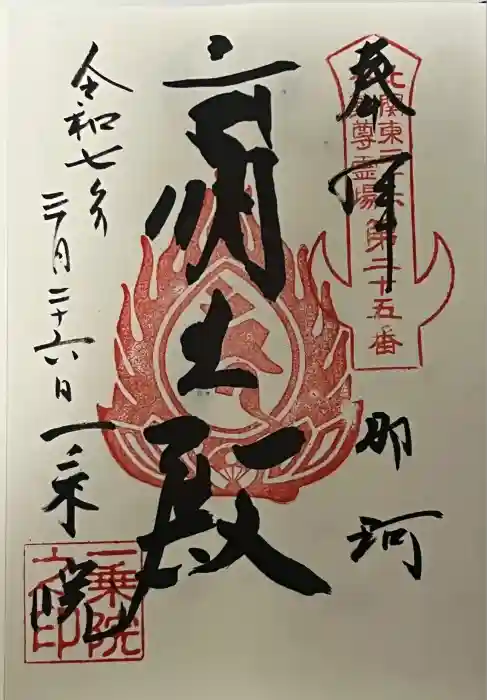 奉拝
北関東三十六
不動尊霊場
第二十五番
那珂
齋土殿
令和七年
三月二十六日
一乗院
一乗院
之印